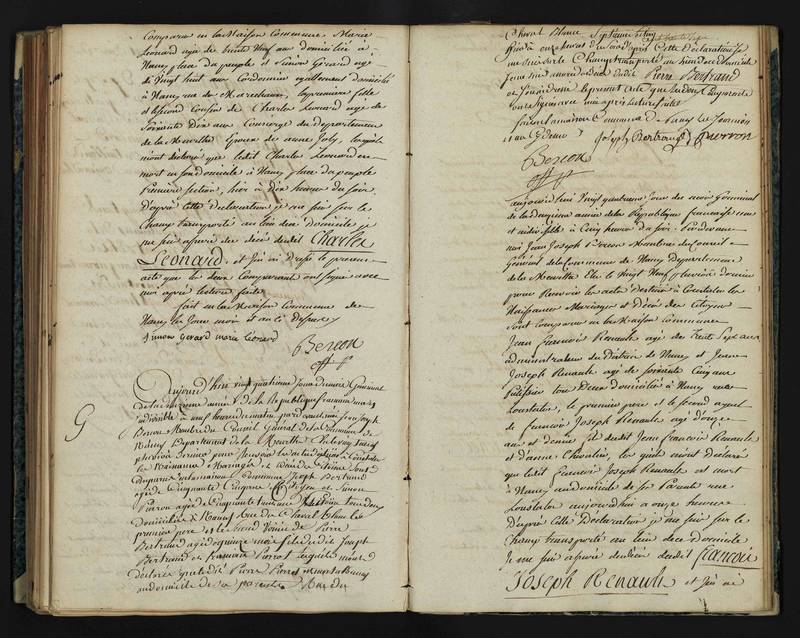 Comparu en la Maison Commune Marie
Leonard agée de trente neuf ans domiciliée à
Nancy place du peuple et Simon Gerard agé
de vingt huit ans Cordonnier egallement domicilié
à Nancy rue des Marechaux, la premiere fille
et le second Cousin de Charles Leonard agé de
soixante Dix ans Concierge du departement
de la Meurthe Epoux de anne Joly, lesquels
mont declaré que ledit Charles Leonard est
mort en son domicile à Nancy place du peuple
premiere section, hier à Dix heures du soir,
d'après cette declaration je me suis sur le
Champ transporté au lieu dud. domicile je
me suis assuré du decès dudit Charles
Leonard, et j'en ai dressé le present
acte que les deux Comparant ont signé avec
moi après lecture faite
fait en la Maison Commune de
Nancy les jour mois et an ci dessus
Simon Gerard marie Leonard
Beron
G
Aujourd'hui vingt quatrieme jour du mois Germinal
de la deuxieme année de la Republique francaise une
indivisible à neuf heures du matin pardevant moi Jean Joseph
Beron Membre du Conseil General de la Commune de
Nancy Departement de la Meurthe Elu le vingt neuf
pluviose dernier pour Recevoir les actes destinés à Constater
les Naissances Mariages et Décès des Citoyens sont
Comparus en la maison Commune Joseph Bertrand
agé de Cinquante Cinq ans et Simon
Pierron agé de Cinquante
domiciliés à Nancy Rue du Cheval Blanc le
premier pere et le second Voisin de Pierre
Bertrand agé de quinze mois fils dudit Joseph
Bertrand et francoise Perrot lesquels mont
declaré que ledit Pierre est mort à Nancy
au domicile de ses parents Rue du
Cheval Blanc Septieme section
d'après cette déclaration je
me suis sur le Champ transporté au lieu de ce domicile
je me suis assuré du decès dudit Pierre Bertrand
et j'en ai dressé le present acte que
ont signé avec moi après lecture faite
fait en la maison Commune de Nancy les jour mois
et an ci dessus Joseph Bertrand pierron
Beron
aujourd'hui Vingt quatrieme jour du mois Germinal
de la Deuxieme année de la Republique francaise une
et indivisible à Cinq heures du soir Pardevant
moi Jean Joseph Beron Membre du Conseil
General de la Commune de Nancy departement
de la Meurthe Elu le Vingt Neuf pluviose dernier
pour Recevoir les actes destinés à Constater les
Naissances Mariages et Décès des Citoyens
sont Comparus en la Maison Commune
Jean francois Renault agé de trente Sept ans
administrateur du District de Nancy et
Joseph Renault agé de soixante Cinq ans
Patissier tous deux domiciliés à Nancy rue
, le premier pere et le second ayeul
de francois Joseph Renault agé d'onze
ans et demie fils dudit Jean francois Renault
et d'anne Chevalier, lesquels mont declaré
que ledit francois Joseph Renault est mort
à Nancy, au domicile de ses Parents rue
aujourd'hui à onze heures
d'après cette Déclaration je me suis sur le
Champ transporté au lieu de ce domicile
Je me suis assuré du decès dudit francois
Joseph Renault et j'en ai